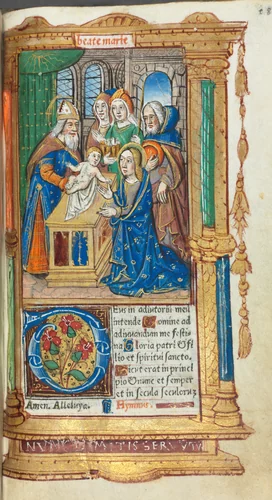 beate marie
Eus in adiutoriũ meũ
intende Domine ad
adiuvandum me festi
na Gloria patri & fi
lio et spiritui sancto.
Sicut erat in princi
pio & nunc et semper
et in secula seculorũ
Amen. Alleluya. Hymnus.
NUNC DIMITIS SERVUM